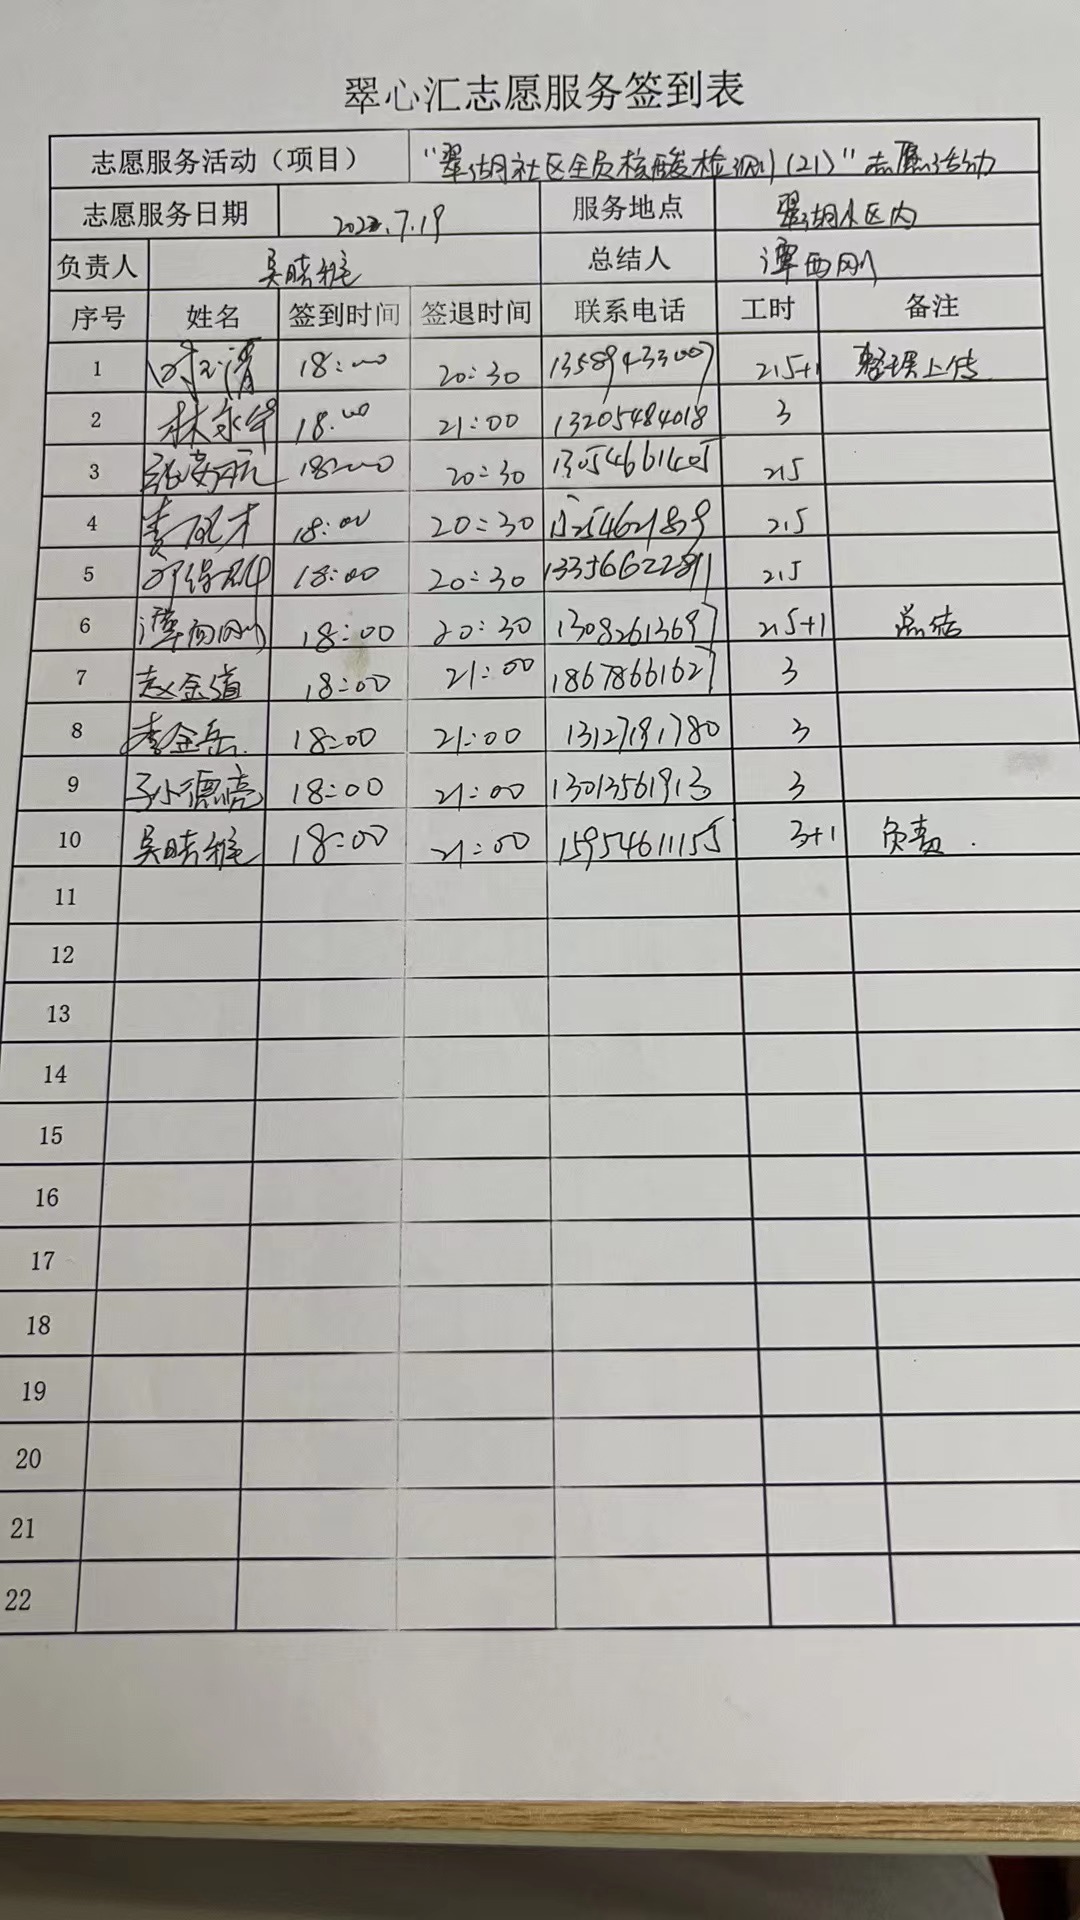 翠心汇志愿服务签到表
志愿服务活动（项目） "翠湖社区全员核酸检测(21)"志愿活动
志愿服务日期 2022.7.19 服务地点 翠湖小区内
负责人 吴晴 总结人 谭西刚
序号 姓名 签到时间 签退时间 联系电话 工时 备注
1 18:00 20:30 13589433007 2.5+1 整理上传
2 林永华 18:00 21:00 13205484018 3
3 18:00 20:30 13054661405 2.5
4 18:00 20:30 2.5
5 18:00 20:30 13356622811 2.5
6 谭西刚 18:00 20:30 13082613697 2.5+1 总结
7 赵金道 18:00 21:00 18678661627 3
8 李金岳 18:00 21:00 13127191780 3
9 孙德亮 18:00 21:00 13013561913 3
10 吴晴 18:00 21:00 15954611155 3+1 负责.
11
12
13
14
15
16
17
18
19
20
21
22